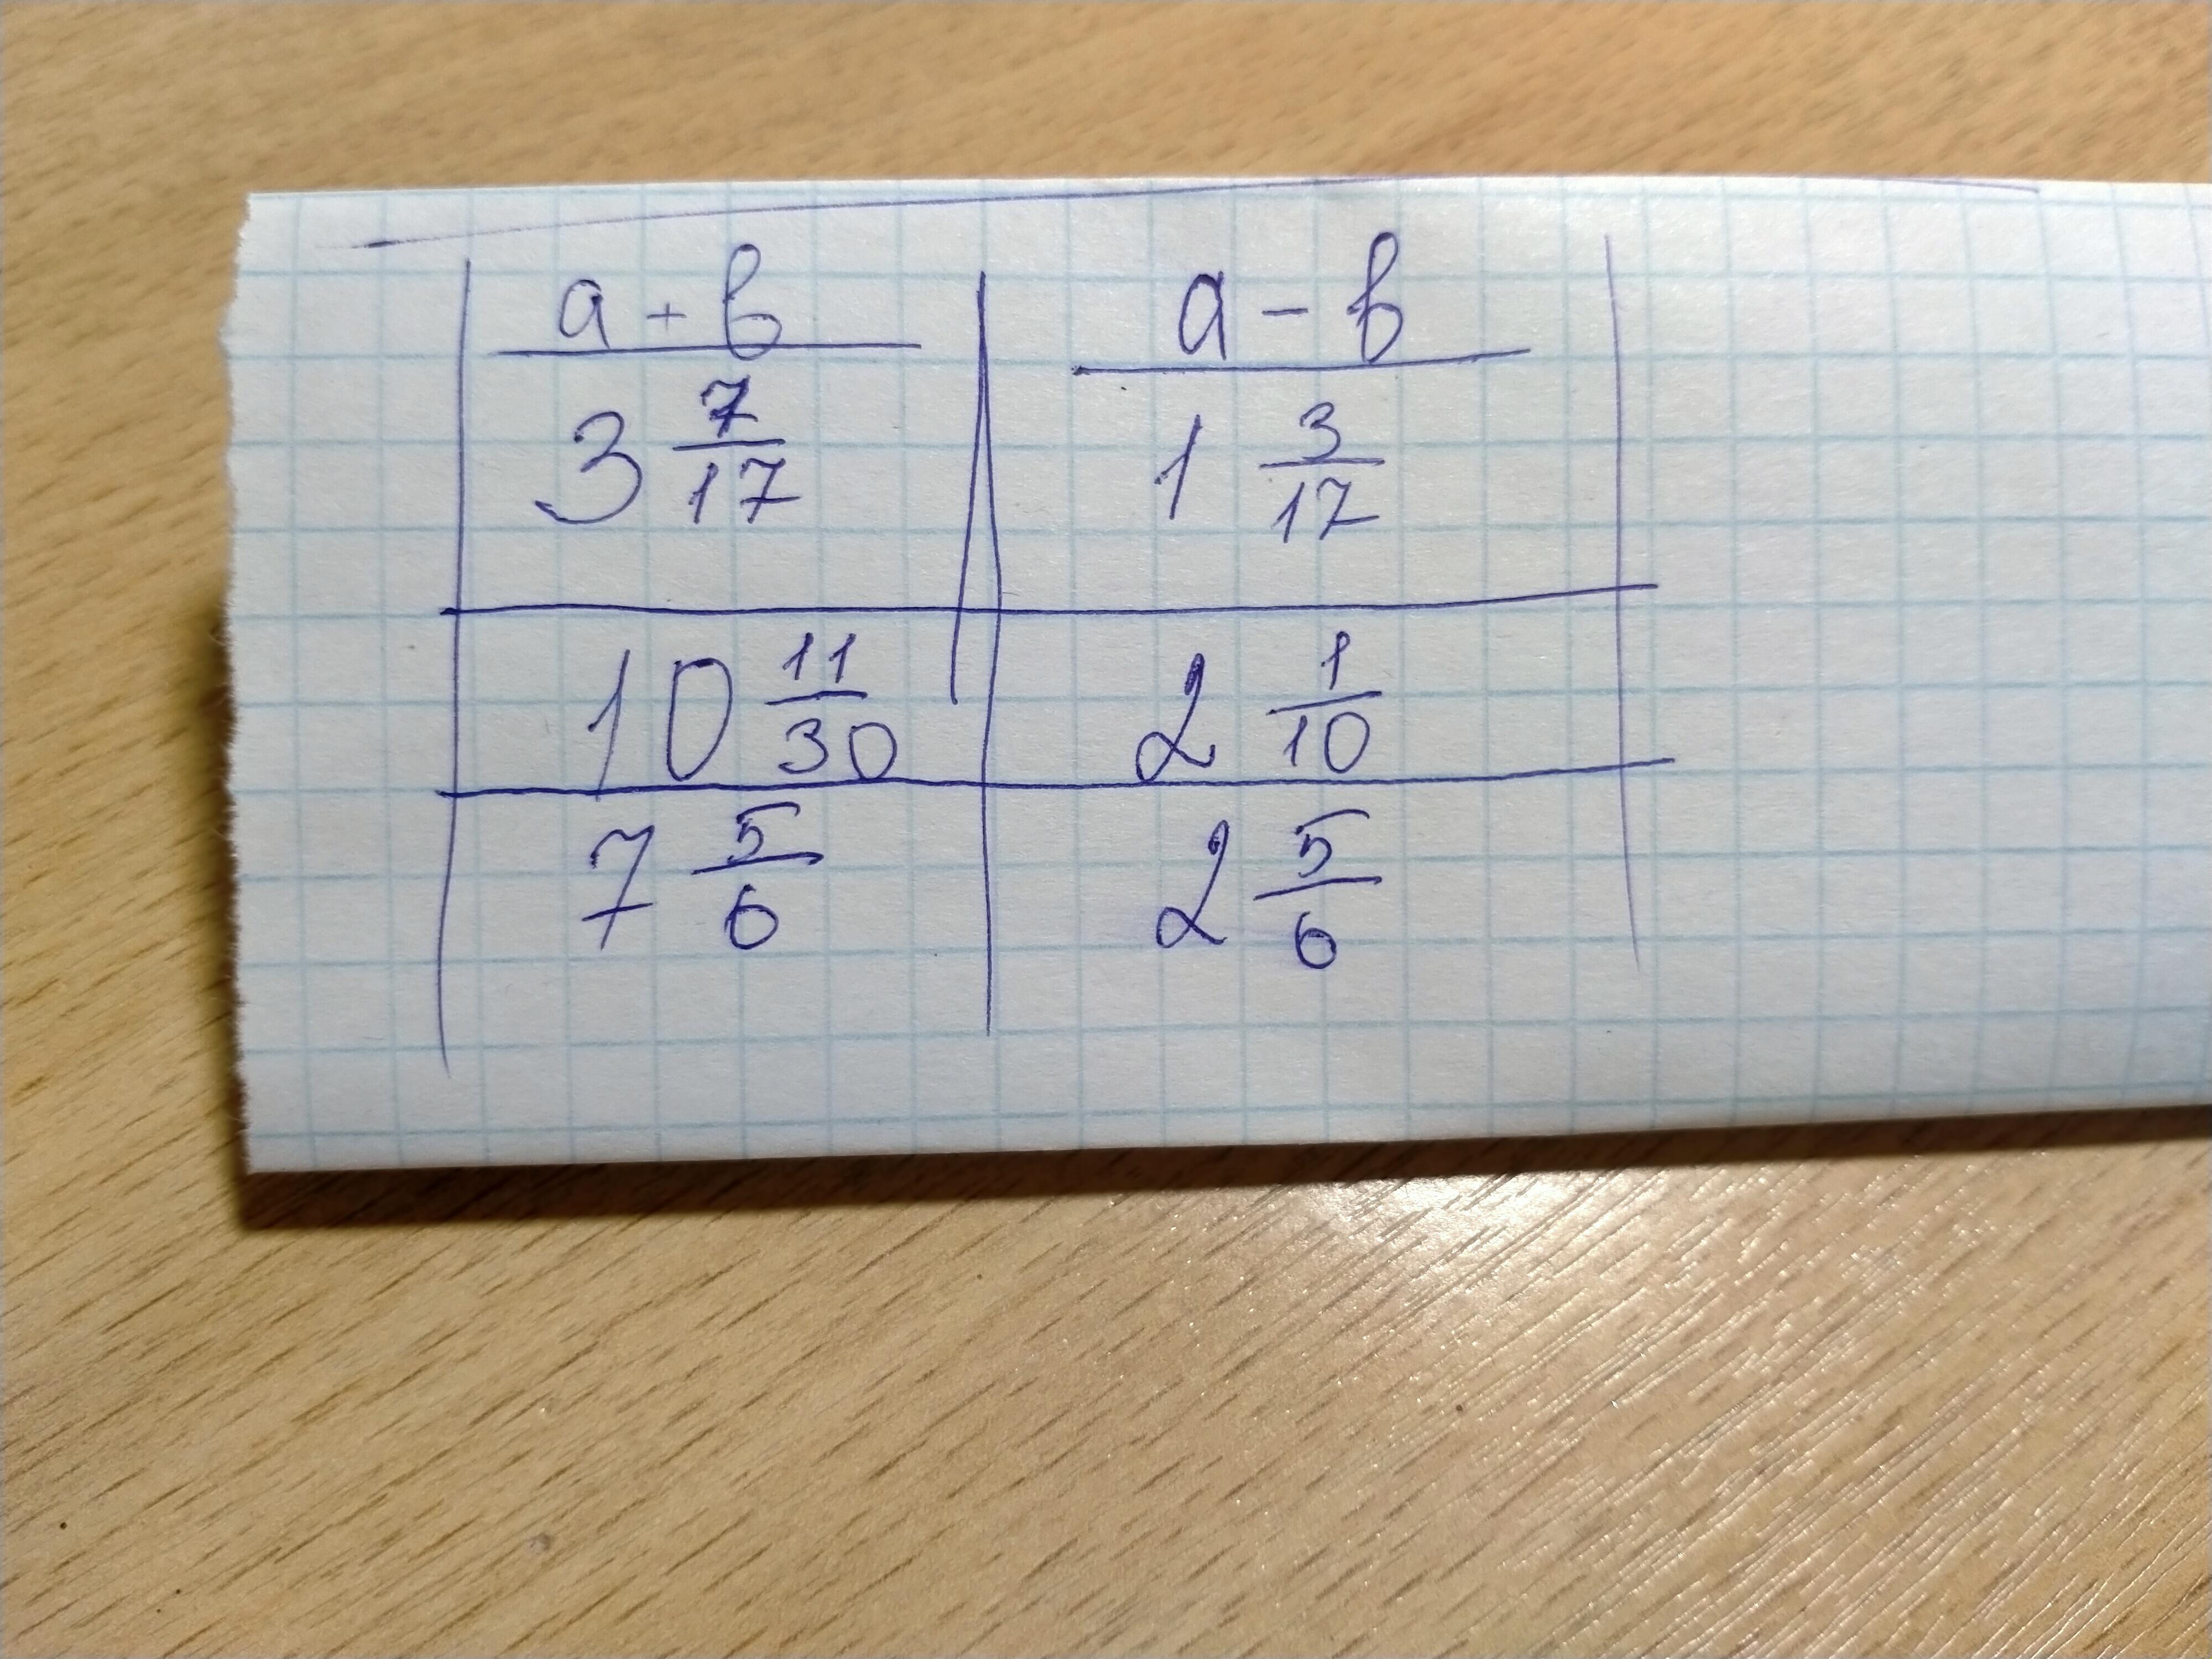 a + b a - b
3 7/17 1 3/17
10 11/30 2 1/10
7 5/6 2 5/6